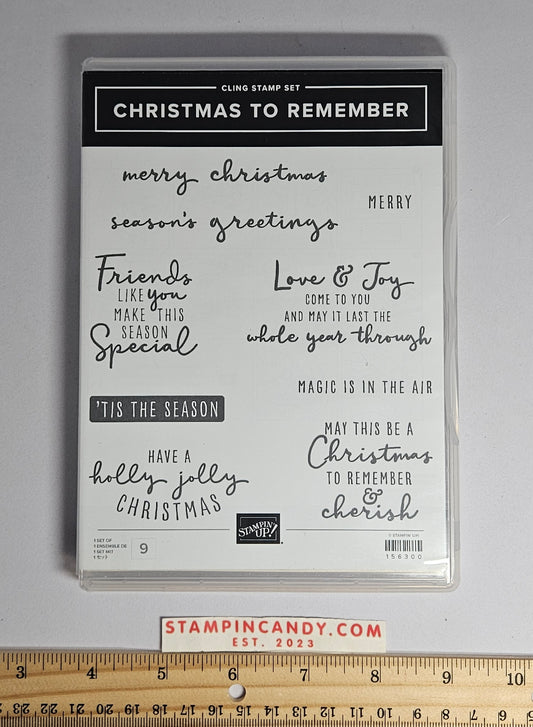 CLING STAMP SET
CHRISTMAS TO REMEMBER
merry christmas
MERRY
season's greetings
Friends
LIKE you
MAKE THIS
SEASON
Special
Love & Joy
COME TO YOU
AND MAY IT LAST THE
whole year through
MAGIC IS IN THE AIR
'TIS THE SEASON
MAY THIS BE A
Christmas
TO REMEMBER
&
cherish
HAVE A
holly jolly
CHRISTMAS
1 SET OF
1 ENSEMBLE DE
1 SET MIT
1 セット
9
STAMPIN' UP!
© STAMPIN' UP!
156300
STAMPINCANDY.COM
EST. 2023
3 4 5 6 7 8 9 10